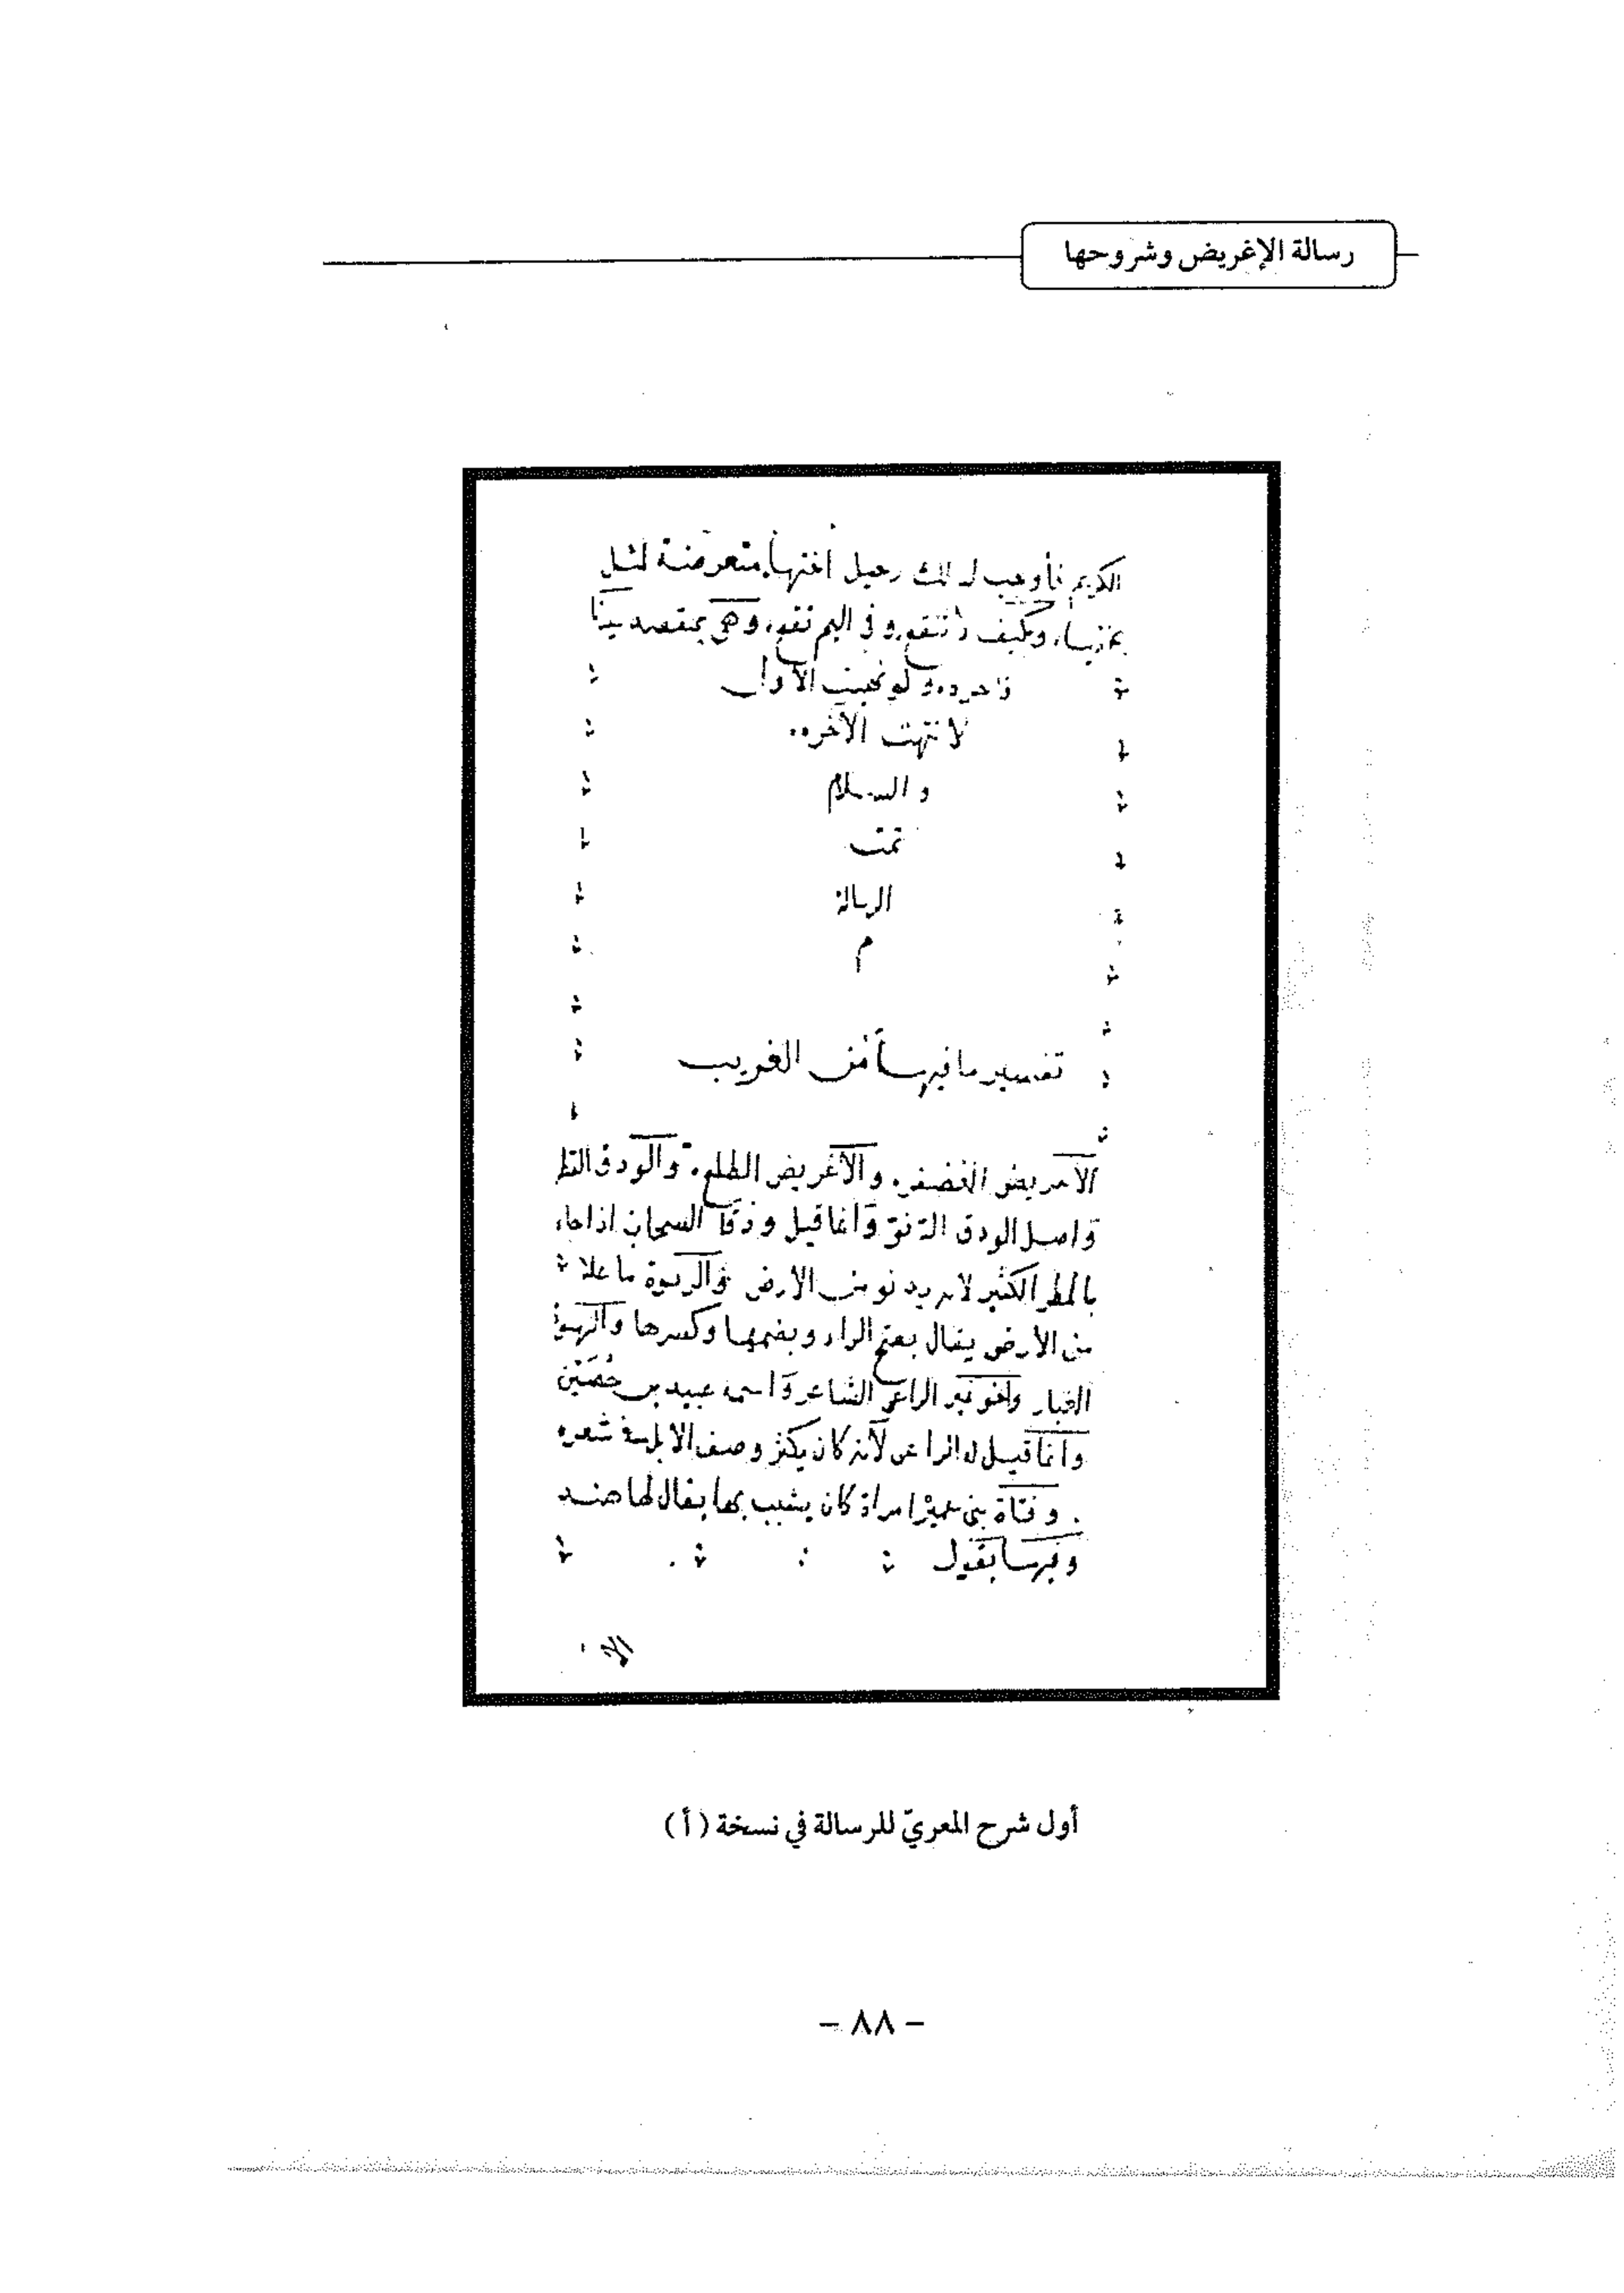 رسالة الإغريض وشروحها
الكريم فأوجب لذلك رحيل أختها متعرضة لمثل
وكيف تنتفع وفي اليم تقع، وهي بمقصد سيدنا
فاخرة، ولو نهيت الأولى
لانتهت الآخرة
والسلام
تمت
الرسالة
م
تفسير ما فيها من الغريب
والاغريض الطلع، والودق القطر
واصل الودق الدنو وانما قيل ودق السحاب اذا جاء
بالمطر الكثير لانه يدنو من الارض والربوة ما علا
من الأرض يقال بفتح الراء وبضمها وكسرها والهبوة
الغبار واخو نمير الراعي الشاعر واسمه عبيد بن حُصَيْن
وانما قيل له الراعي لأنه كان يكثر وصف الابل في شعره
وفتاة بني نمير امراة كان يشبب بها يقال لها هند
وفيها يقول
أول شرح المعريّ للرسالة في نسخة (أ)
– ٨٨ –